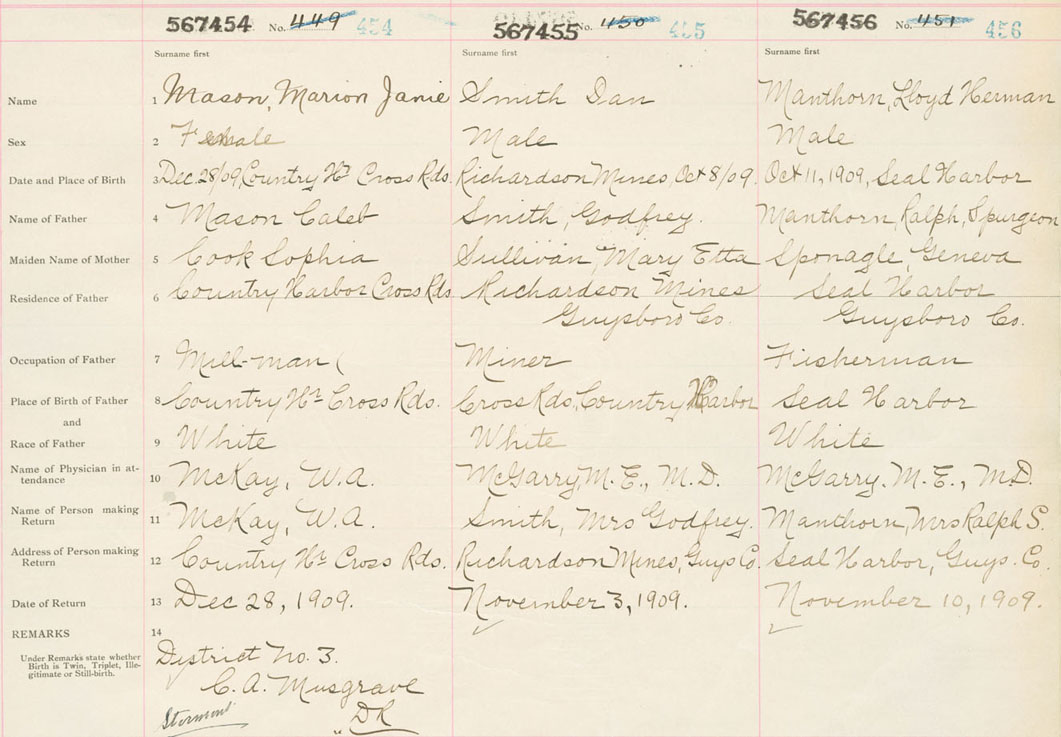 567454 No. 449 454 567455 No. 450 455 567456 No. 451 456
Surname first Surname first Surname first
Name 1 Mason, Marion Janie Smith Dan Manthorn, Lloyd Herman
Sex 2 Female Male Male
Date and Place of Birth 3 Dec. 28/09, Country Hr Cross Rds. Richardson Mines, Oct 8/09. Oct 11, 1909, Seal Harbor
Name of Father 4 Mason Caleb Smith, Godfrey. Manthorn, Ralph, Spurgeon
Maiden Name of Mother 5 Cook Sophia Sullivan, Mary Etta Sponagle, Geneva
Residence of Father 6 Country Harbor Cross Rds Richardson Mines Seal Harbor
Guysboro Co. Guysboro Co.
Occupation of Father 7 Mill-man ( Miner Fisherman
Place of Birth of Father 8 Country Hr Cross Rds. Cross Rds, Country Harbor Seal Harbor
and
Race of Father 9 White White White
Name of Physician in at-
tendance 10 McKay, W.A. McGarry, M.E., M.D. McGarry, M.E., M.D.
Name of Person making
Return 11 McKay, W.A. Smith, Mrs Godfrey. Manthorn, Mrs Ralph S.
Address of Person making
Return 12 Country Hr Cross Rds. Richardson Mines, Guys Co. Seal Harbor, Guys. Co.
Date of Return 13 Dec 28, 1909. November 3, 1909. November 10, 1909.
REMARKS 14
Under Remarks state whether
Birth is Twin, Triplet, Ille-
gitimate or Still-birth.
District No. 3.
C. A. Musgrave
Stormont " DR